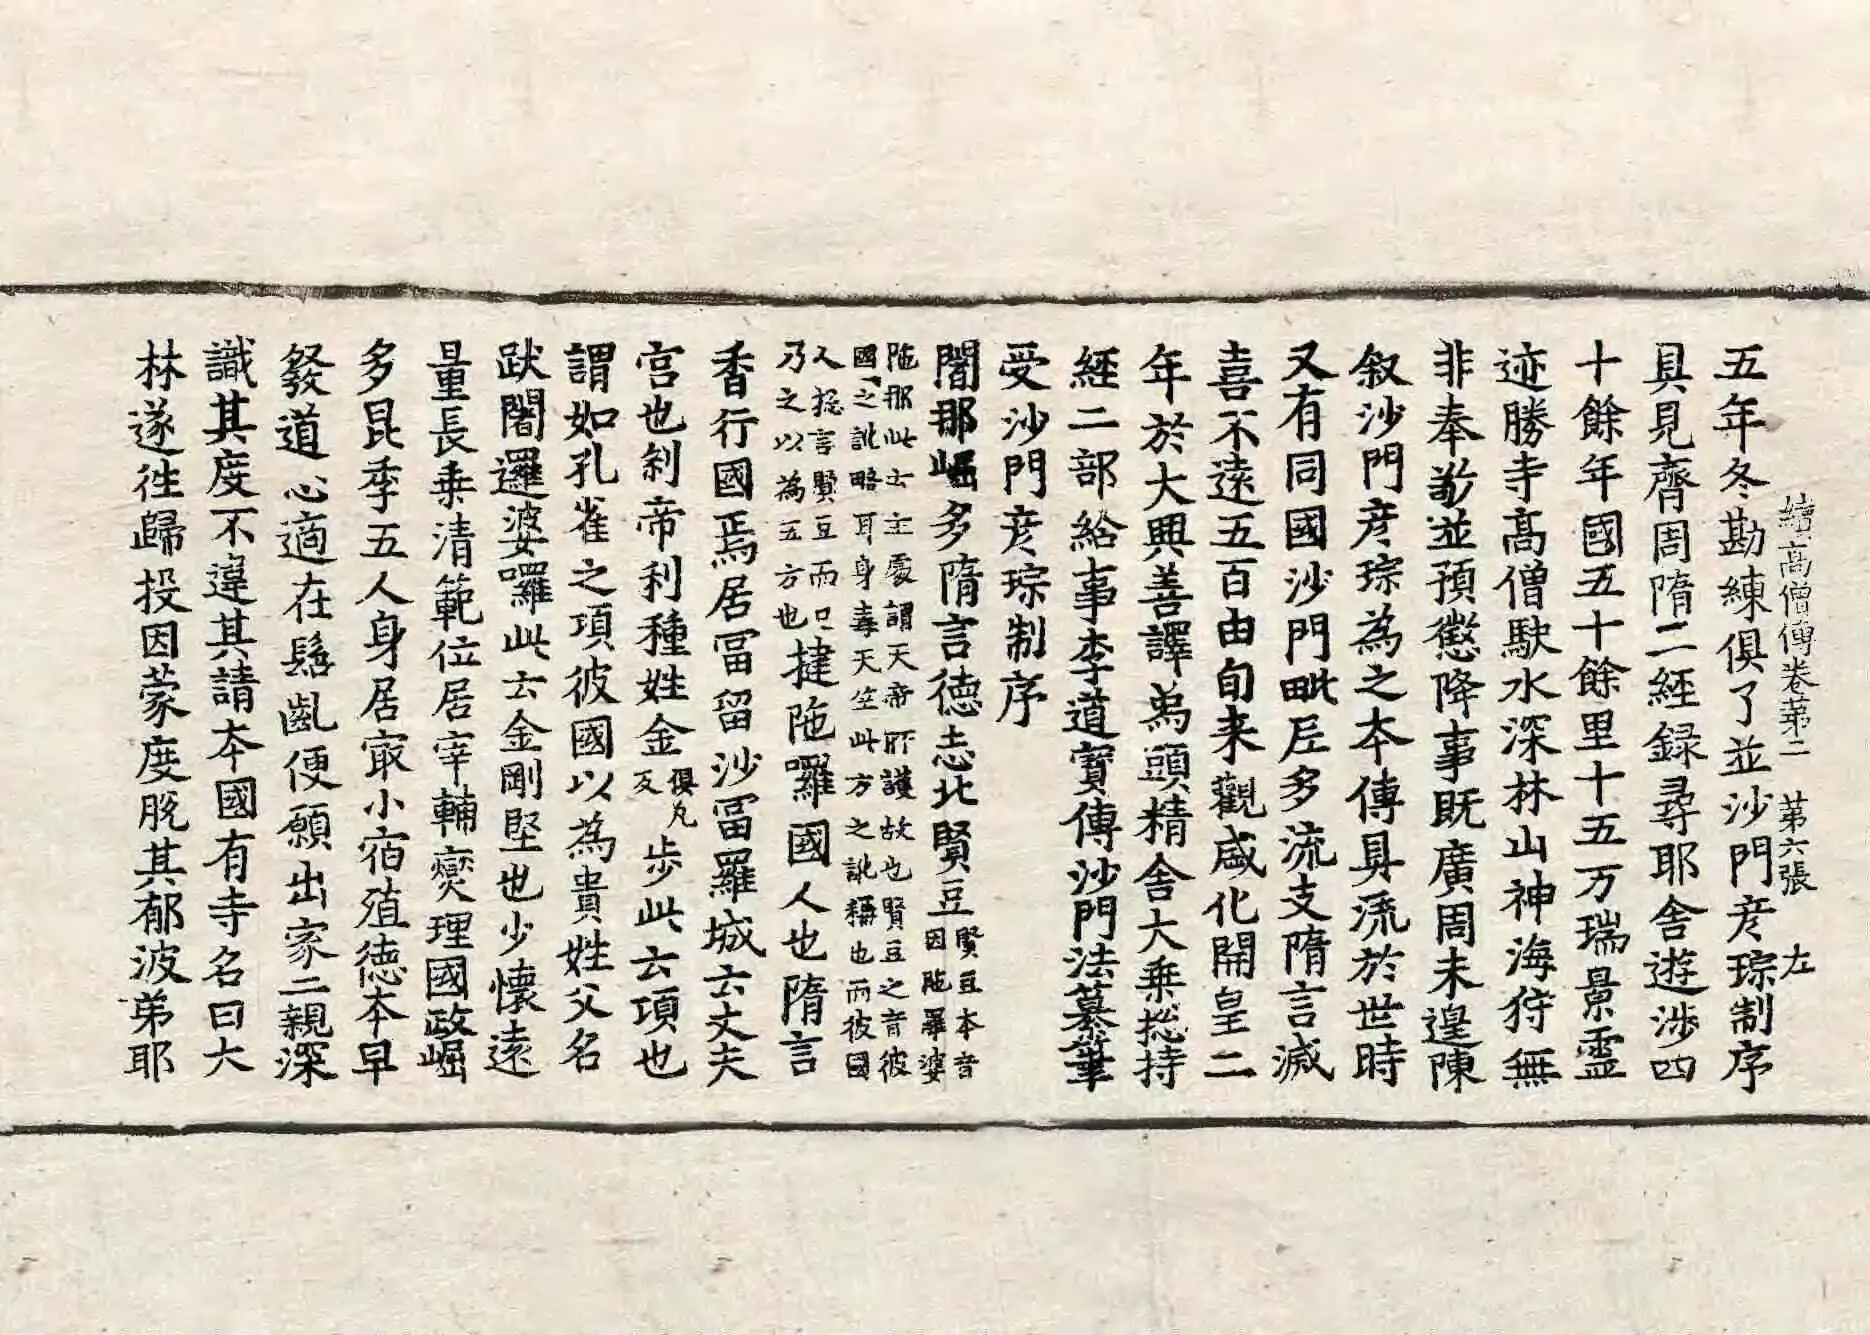 續高僧傳卷苐二　苐六張　左
五年冬勘練俱了並沙門彦琮制序
具見齊周隋二經録尋耶舍遊涉四
十餘年國五十餘里十五万瑞景霊
迹勝寺高僧駛水深林山神海狩無
非奉敬並預懲降事既廣周未遑陳
叙沙門彦琮為之夲傳具流於世時
又有同國沙門毗尼多流支隋言滅
喜不遠五百由旬来觀盛化開皇二
年於大興善譯為頭精舍大乗揔持
經二部給事李道寶傳沙門法纂筆
受沙門彦琮制序
闍那崛多隋言德志北賢豆賢豆本音
因陁羅婆
陁那此士主處謂天帝所護故也賢豆之音彼
國之訛略耳身毒天竺此方之訛稱也而彼國
人揔言賢豆而已
乃之以為五方也揵陁囉國人也隋言
香行國焉居冨留沙冨羅城云丈夫
宫也刹帝利種姓金俱凡反步此云項也
謂如孔雀之項彼國以為貴姓父名
跋闍邏婆囉此云金剛堅也少懷遠
量長乗清範位居宰輔燮理國政崛
多昆季五人身居㝡小宿殖徳本早
發道心適在髫齓便願出家二親深
識其度不違其請夲國有寺名曰大
林遂往歸投因蒙度脱其郁波弟耶